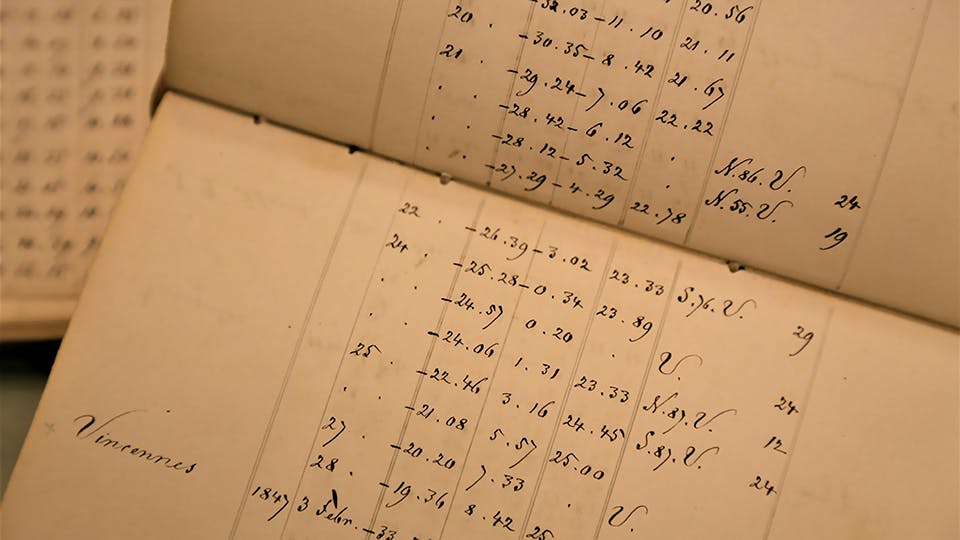 20.56
-32.03 -11.10 21.11
20 . -30.35 -8.42 21.67
21 . -29.24 -7.06 22.22
. . -28.42 -6.12 . N.86.V. 24
. . -28.12 -5.32 . N.55.V. 19
. . -27.29 -4.29 22.78
22 . -26.39 -3.02 23.33 S.76.V. 29
24 . -25.28 -0.34 23.89
. . -24.57 0.20 . V. 24
. . -24.06 1.31 23.33 N.87.V. 12
25 . -22.46 3.16 24.45 S.87.V. 24
. . -21.08 5.57 25.00
27 . -20.20 7.33 . V.
28 . -19.36 8.42 25
Vincennes 1847 3 Febr. -33